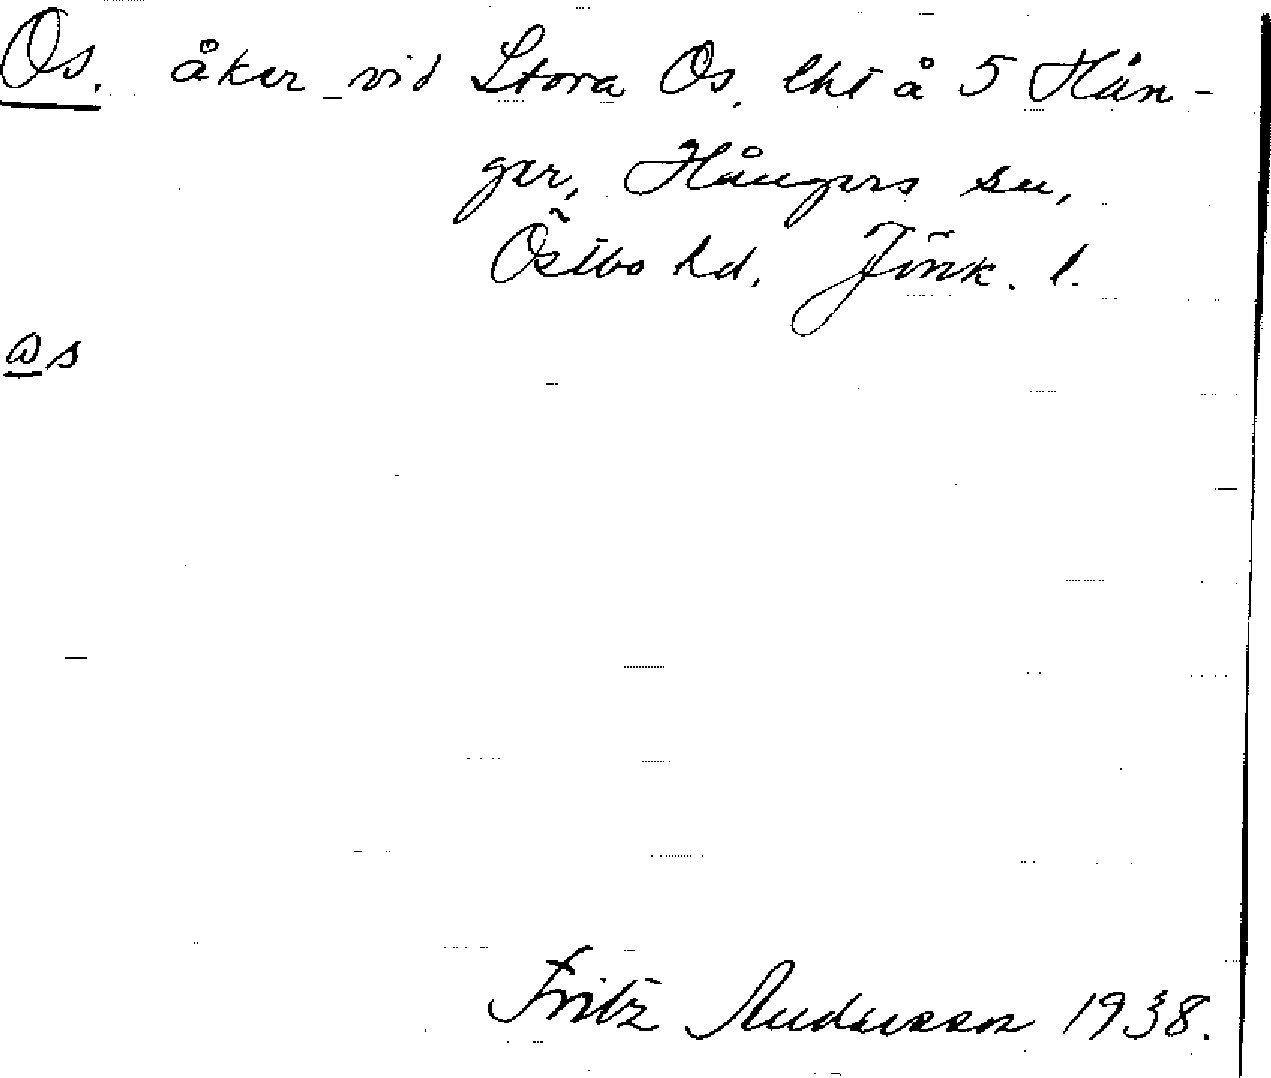 Os. åker vid Stora Os. lht å 5 Hån-
ger, Hångers sn,
Östbo hd, Jönk. l.
ɷs
Fritz Andersson 1938.